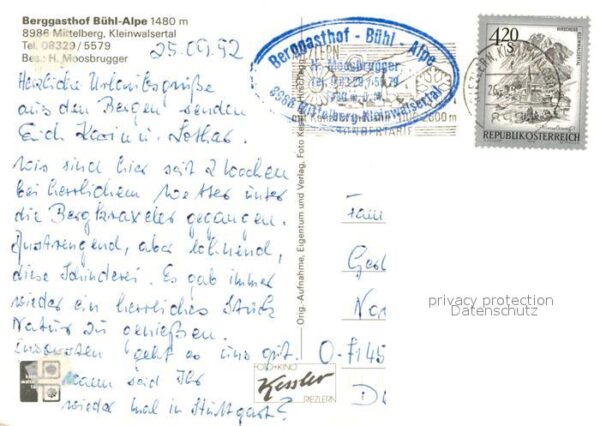 Berggasthof Bühl-Alpe 1480 m
8986 Mittelberg, Kleinwalsertal
Tel. 08329/5579
Bes.: H. Moosbrugger
25.09.92
Herzliche Urlaubsgrüße
aus den Bergen senden
Euch Karin u. Lothar.
Wir sind hier seit 2 Wochen
bei herrlichem Wetter unter
die Bergkraxler gegangen.
Anstrengend, aber lohnend,
diese Schinderei. Es gab immer
wieder ein herrliches Stück
Natur zu genießen.
Ansonsten geht es uns gut.
Wann seid Ihr
wieder mal in Stuttgart?
Berggasthof - Bühl - Alpe
H. Moosbrugger
Tel. 08329/5579
8986 Mittelberg-Kleinwalsertal
2000 m
4.20
S
REPUBLIK ÖSTERREICH
Orig.-Aufnahme, Eigentum und Verlag, Foto
Fam
Na
O-7145
privacy protection
Datenschutz
FOTO+KINO
Kessler
RIEZLERN